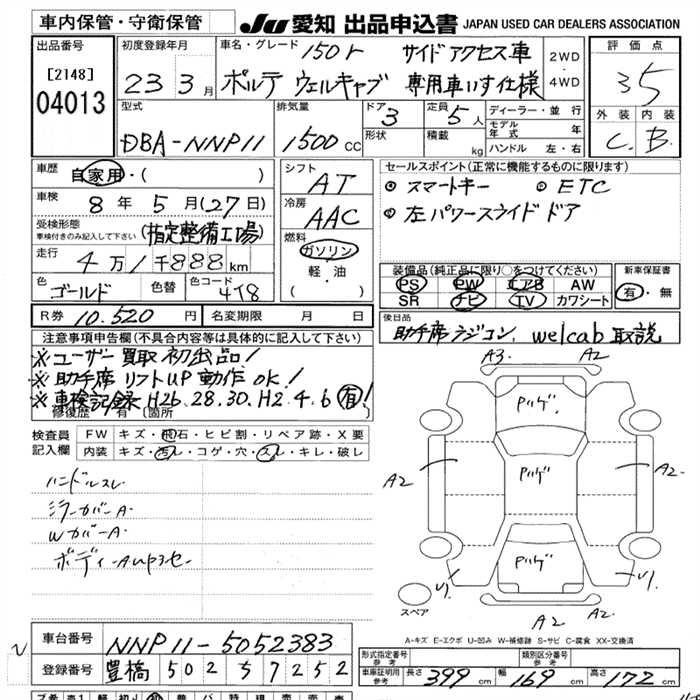 車内保管・守衛保管
JU 愛知 出品申込書 JAPAN USED CAR DEALERS ASSOCIATION
出品番号
[2148]
04013
初度登録年月
23 3月
車名・グレード 150r サイドアクセス車
ポルテ ウェルキャブ 専用車いす仕様
2WD
4WD
評価点
3.5
外装 内装
C. B.
型式
DBA-NNP11
排気量
1500 CC
ドア 3
形状
定員 5 人
積載 kg
ディーラー・並行
モデル年式 年
ハンドル 左・右
車歴 自家用・( )
車検 8年 5月(27日)
受検形態
車検付きのみ記入して下さい (指定整備工場)
走行 4万1千888km
色 ゴールド 色替 色コード 4T8
シフト AT
冷房 AAC
燃料
ガソリン
軽・油
( )
セールスポイント(正常に機能するものに限ります)
スマートキー ETC
左パワースライドドア
装備品(純正品に限り○をつけてください)
PS PW エアB AW
SR ナビ TV カワシート
新車保証書
有・無
R券 10.520円 名変期限 月 日
後日品
助手席ラジコン、welcab取説
注意事項申告欄(不具合内容等は具体的に記入して下さい)
※ユーザー買取初出品!
※助手席リフトUP動作OK!
※車検記録H26.28.30.H2.4.6有!
修復歴 有(箇所
検査員
記入欄
FW キズ・飛石・ヒビ割・リペア跡・X要
内装 キズ・汚レ・コゲ・穴・スレ・キレ・破レ
ハンドルスレ
ミラーカバーA
WカバーA
A3 A2
A2 A2
A2 A2
スペア
A-キズ E-エクボ U-凹み W-補修跡 S-サビ C-腐食 XX-交換済
車台番号 NNP11-5052383
登録番号 豊橋 502 す 7252
形式指定番号
参考
類別区分番号
参考
車庫証明用
参考
長さ 399 cm 幅 169 cm 高さ 172 cm